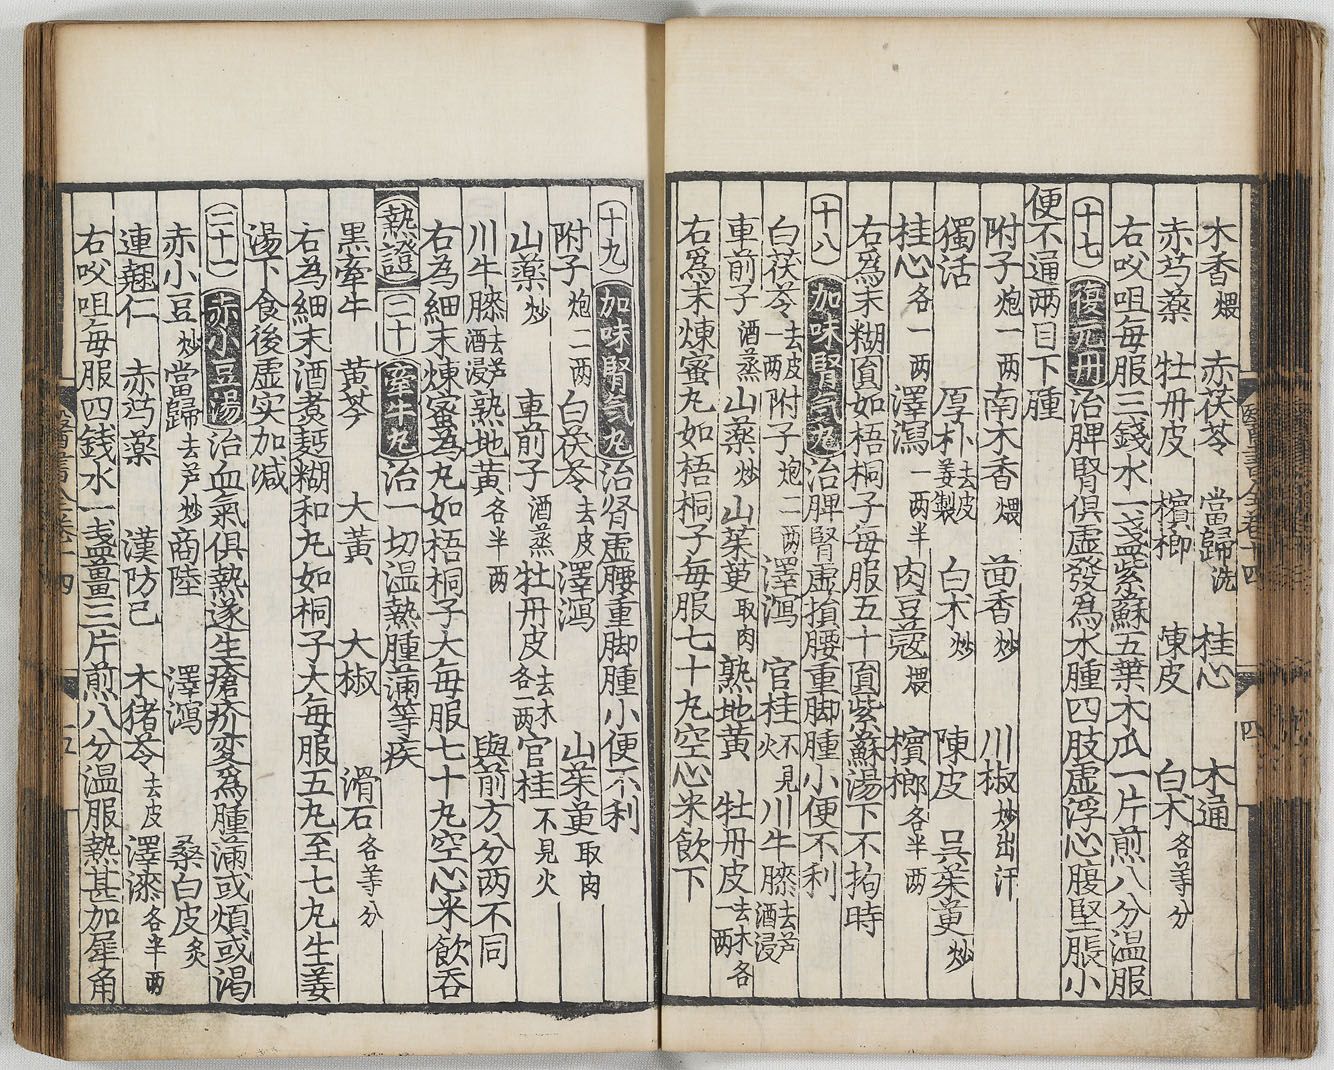 木香煨　赤茯苓　當歸洗　桂心　木通
赤芍藥　牡丹皮　檳榔　陳皮　白术各等分
右㕮咀每服三錢水一盞紫蘇五葉木瓜一片煎八分温服
十七　復元丹　治脾腎俱虚發為水腫四肢虚浮心腹堅脹小
便不通两目下腫
附子炮一两　南木香煨　茴香炒　川椒炒出汗
獨活　厚朴去皮姜製　白术炒　陳皮　呉茱萸炒
桂心各一两　澤瀉一两半　肉豆蔻煨　檳榔各半两
右爲末糊圓如梧桐子每服五十圓紫蘇湯下不拘時
十八　加味腎気丸　治脾腎虚損腰重脚腫小便不利
白茯苓去皮一两　附子炮二两　澤瀉　官桂不見火　川牛膝去芦酒浸
車前子酒蒸　山藥炒　山茱萸取肉　熟地黄　牡丹皮去木各一两
右爲末煉蜜丸如梧桐子每服七十丸空心米飲下
醫書大全卷十四　四
十九　加味腎気丸　治肾虚腰重脚腫小便不利
附子炮二两　白茯苓去皮　澤瀉　山茱萸取肉
山藥炒　車前子酒蒸　牡丹皮去木各一两　官桂不見火
川牛膝去芦酒浸　熟地黄各半两　與前方分两不同
右為細末煉蜜為丸如梧桐子大每服七十丸空心米飲吞
熱證　二十　牽牛丸　治一切温熱腫滿等疾
黒牽牛　黄芩　大黄　大椒　滑石各等分
右為細末酒煮麪糊和丸如桐子大每服五丸至七丸生姜
湯下食後虚实加减
二十一　赤小豆湯　治血氣俱熱遂生瘡疥変爲腫滿或煩或渇
赤小豆炒　當歸去芦炒　商陸　澤瀉　桑白皮炙
連翹仁　赤芍藥　漢防己　木猪苓去皮　澤漆各半两
右㕮咀每服四錢水一盞薑三片煎八分温服熱甚加犀角
醫書大全卷十四　五